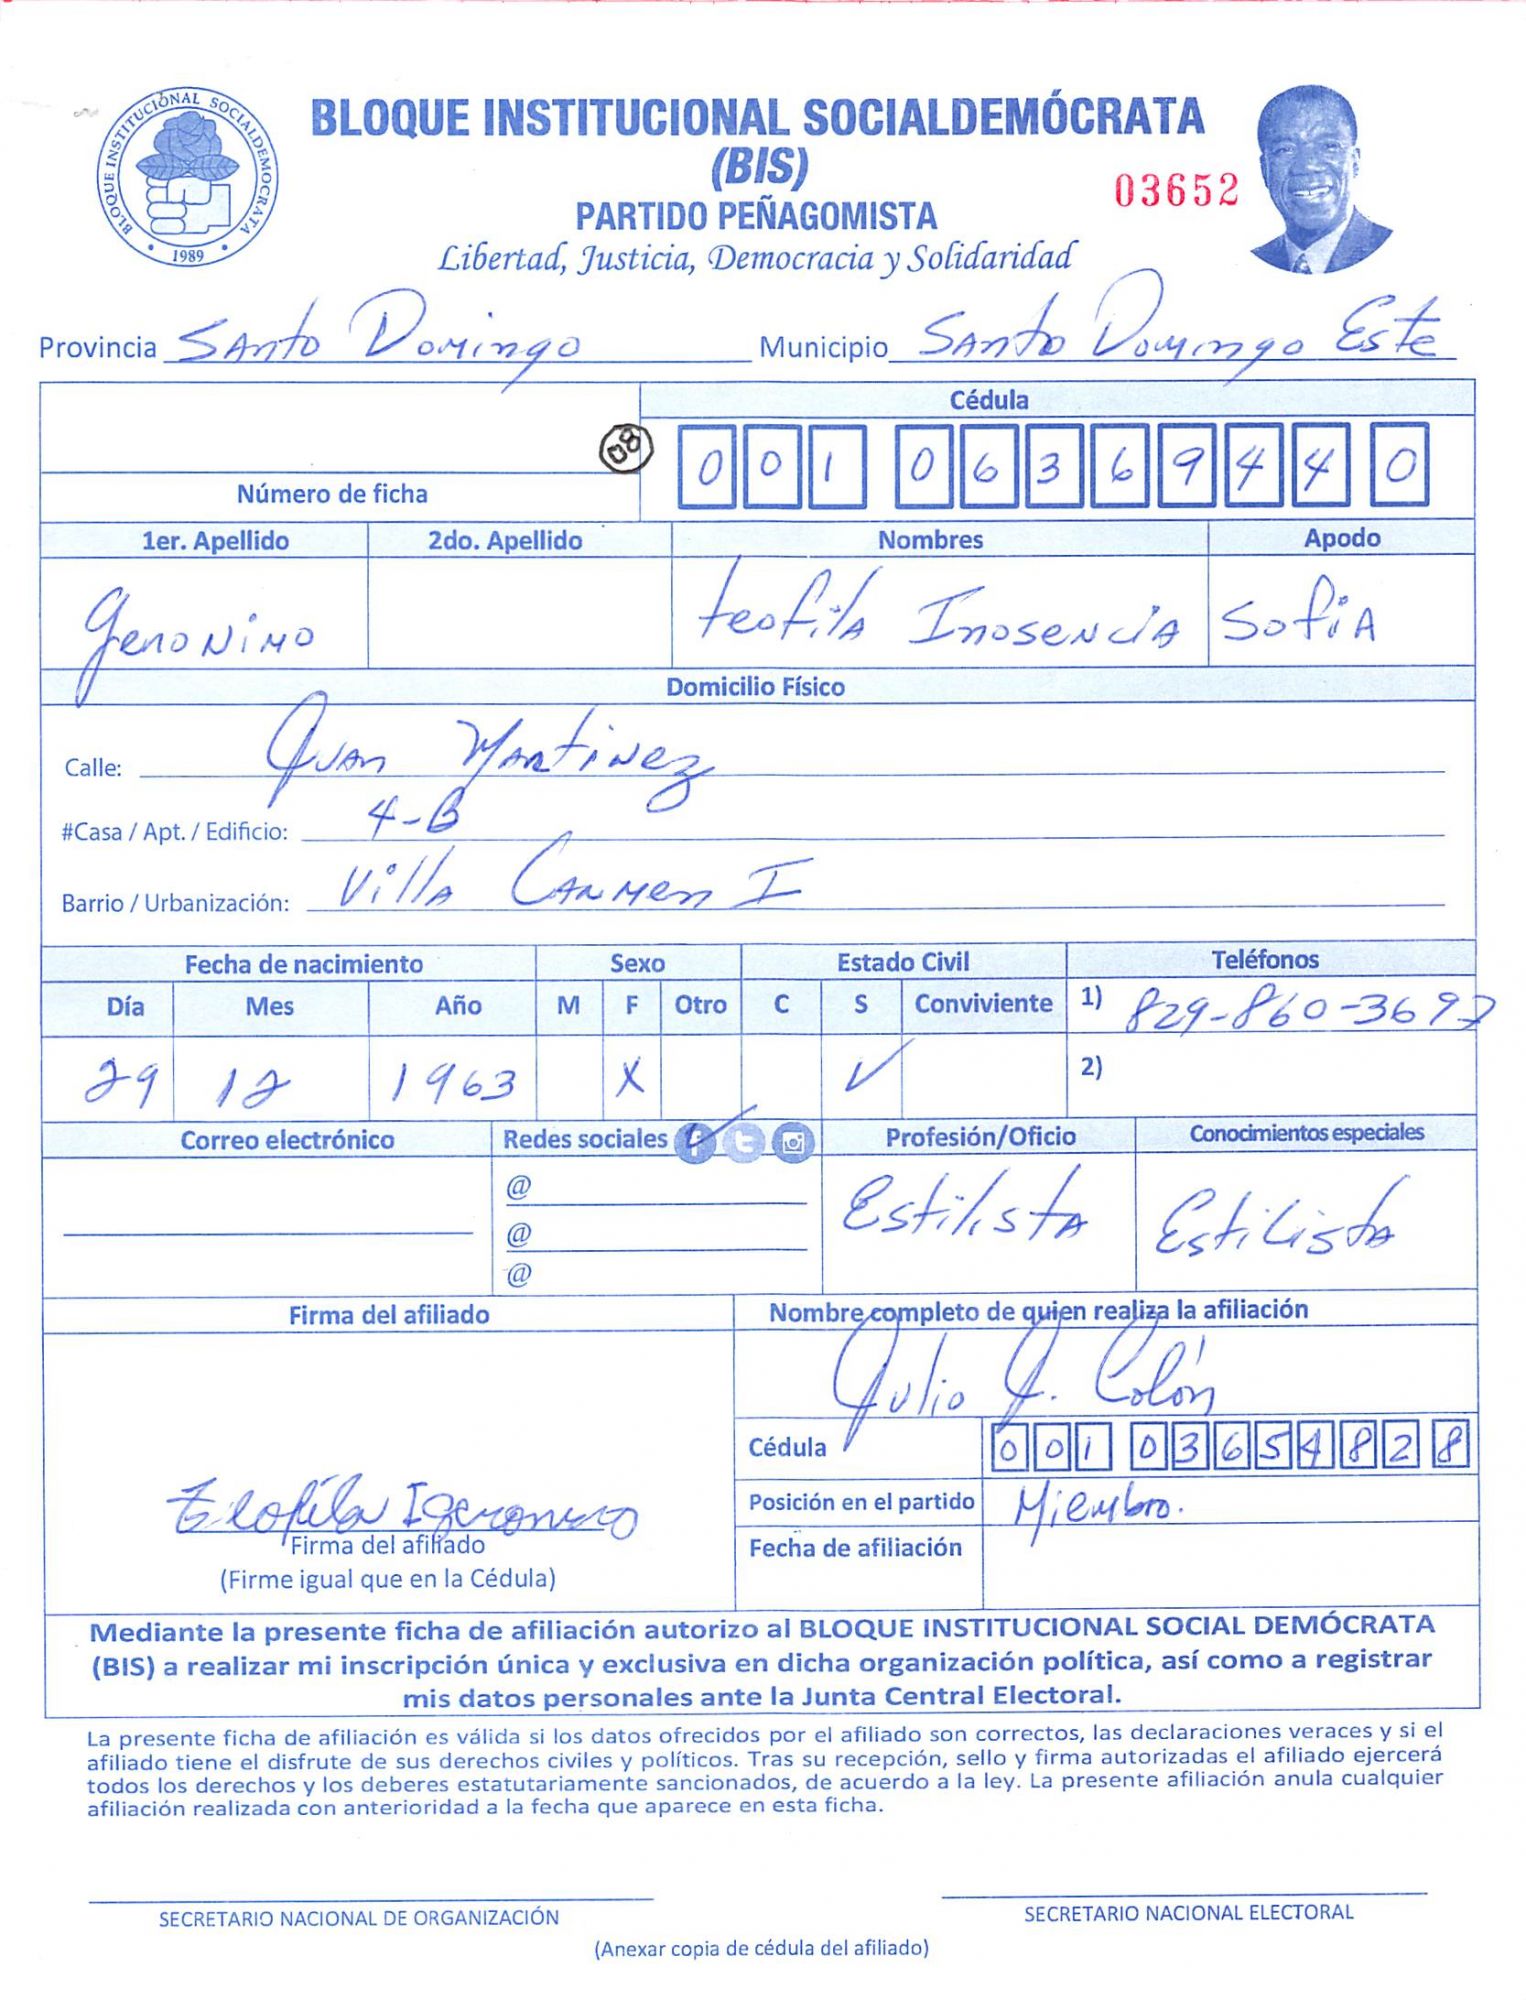 BLOQUE INSTITUCIONAL SOCIALDEMOCRATA
1989
BLOQUE INSTITUCIONAL SOCIALDEMÓCRATA
(BIS)
PARTIDO PEÑAGOMISTA
03652
Libertad, Justicia, Democracia y Solidaridad
Provincia Santo Domingo Municipio Santo Domingo Este
Cédula
08
001 0636944 0
Número de ficha
1er. Apellido 2do. Apellido Nombres Apodo
Geronimo teofila Inosencia Sofia
Domicilio Físico
Calle: Juan Martinez
#Casa / Apt. / Edificio: 4-B
Barrio / Urbanización: Villa Carmen I
Fecha de nacimiento Sexo Estado Civil Teléfonos
Día Mes Año M F Otro C S Conviviente 1) 829-860-3697
29 12 1963 X ✓ 2)
Correo electrónico Redes sociales Profesión/Oficio Conocimientos especiales
@ Estilista Estilista
@
@
Firma del afiliado Nombre completo de quien realiza la afiliación
Julio J. Colón
Cédula 001 0365482 8
Teofila I geronimo Posición en el partido Miembro.
Firma del afiliado Fecha de afiliación
(Firme igual que en la Cédula)
Mediante la presente ficha de afiliación autorizo al BLOQUE INSTITUCIONAL SOCIAL DEMÓCRATA
(BIS) a realizar mi inscripción única y exclusiva en dicha organización política, así como a registrar
mis datos personales ante la Junta Central Electoral.
La presente ficha de afiliación es válida si los datos ofrecidos por el afiliado son correctos, las declaraciones veraces y si el
afiliado tiene el disfrute de sus derechos civiles y políticos. Tras su recepción, sello y firma autorizadas el afiliado ejercerá
todos los derechos y los deberes estatutariamente sancionados, de acuerdo a la ley. La presente afiliación anula cualquier
afiliación realizada con anterioridad a la fecha que aparece en esta ficha.
SECRETARIO NACIONAL DE ORGANIZACIÓN SECRETARIO NACIONAL ELECTORAL
(Anexar copia de cédula del afiliado)